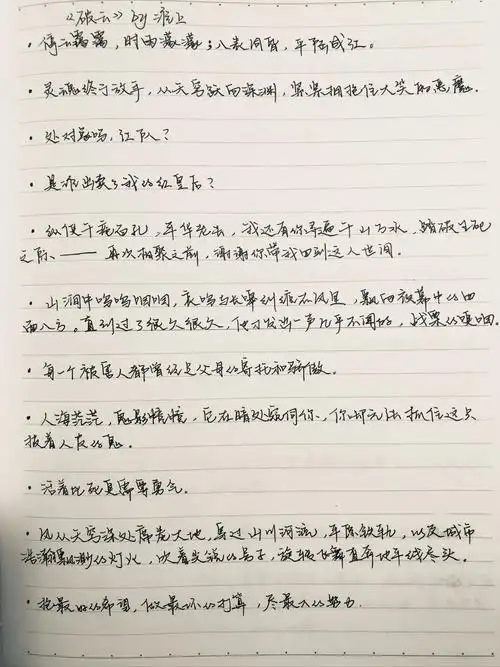 《破云》by 淮上
· 停云霭霭，时雨濛濛；八表同昏，平陆成江。
· 灵魂终于放手，从天穹跃向深渊，紧紧拥抱住大笑的恶魔.
· 处对象吗，江队？
· 是谁出卖了我的红皇后？
· 纵使千疮百孔，年华死去，我还有你寻遍千山万水，踏破生死
之际、—— 再次相聚之前，谢谢你带我回到这人世间.
· 山涧中呜呜咽咽，哀鸣与长啸纠缠不风里，飘向夜幕中的四
面八方。直到过了很久很久，他才发出一声几乎不闻的，战栗的哽咽.
· 每一个被害人都曾经是父母的寄托和骄傲。
· 人海茫茫，鬼影幢幢，它在暗处窥伺你，你却无法抓住这只
披着人皮的鬼.
· 活着比死更需要勇气.
· 风从天穹深处席卷大地，穿过山川河流，平原铁轨，以及城市
浩瀚渺渺的灯火，吹着尖锐的哨子，旋转飞舞直奔地平线尽头。
· 抱最好的希望，做最坏的打算，尽最大的努力.